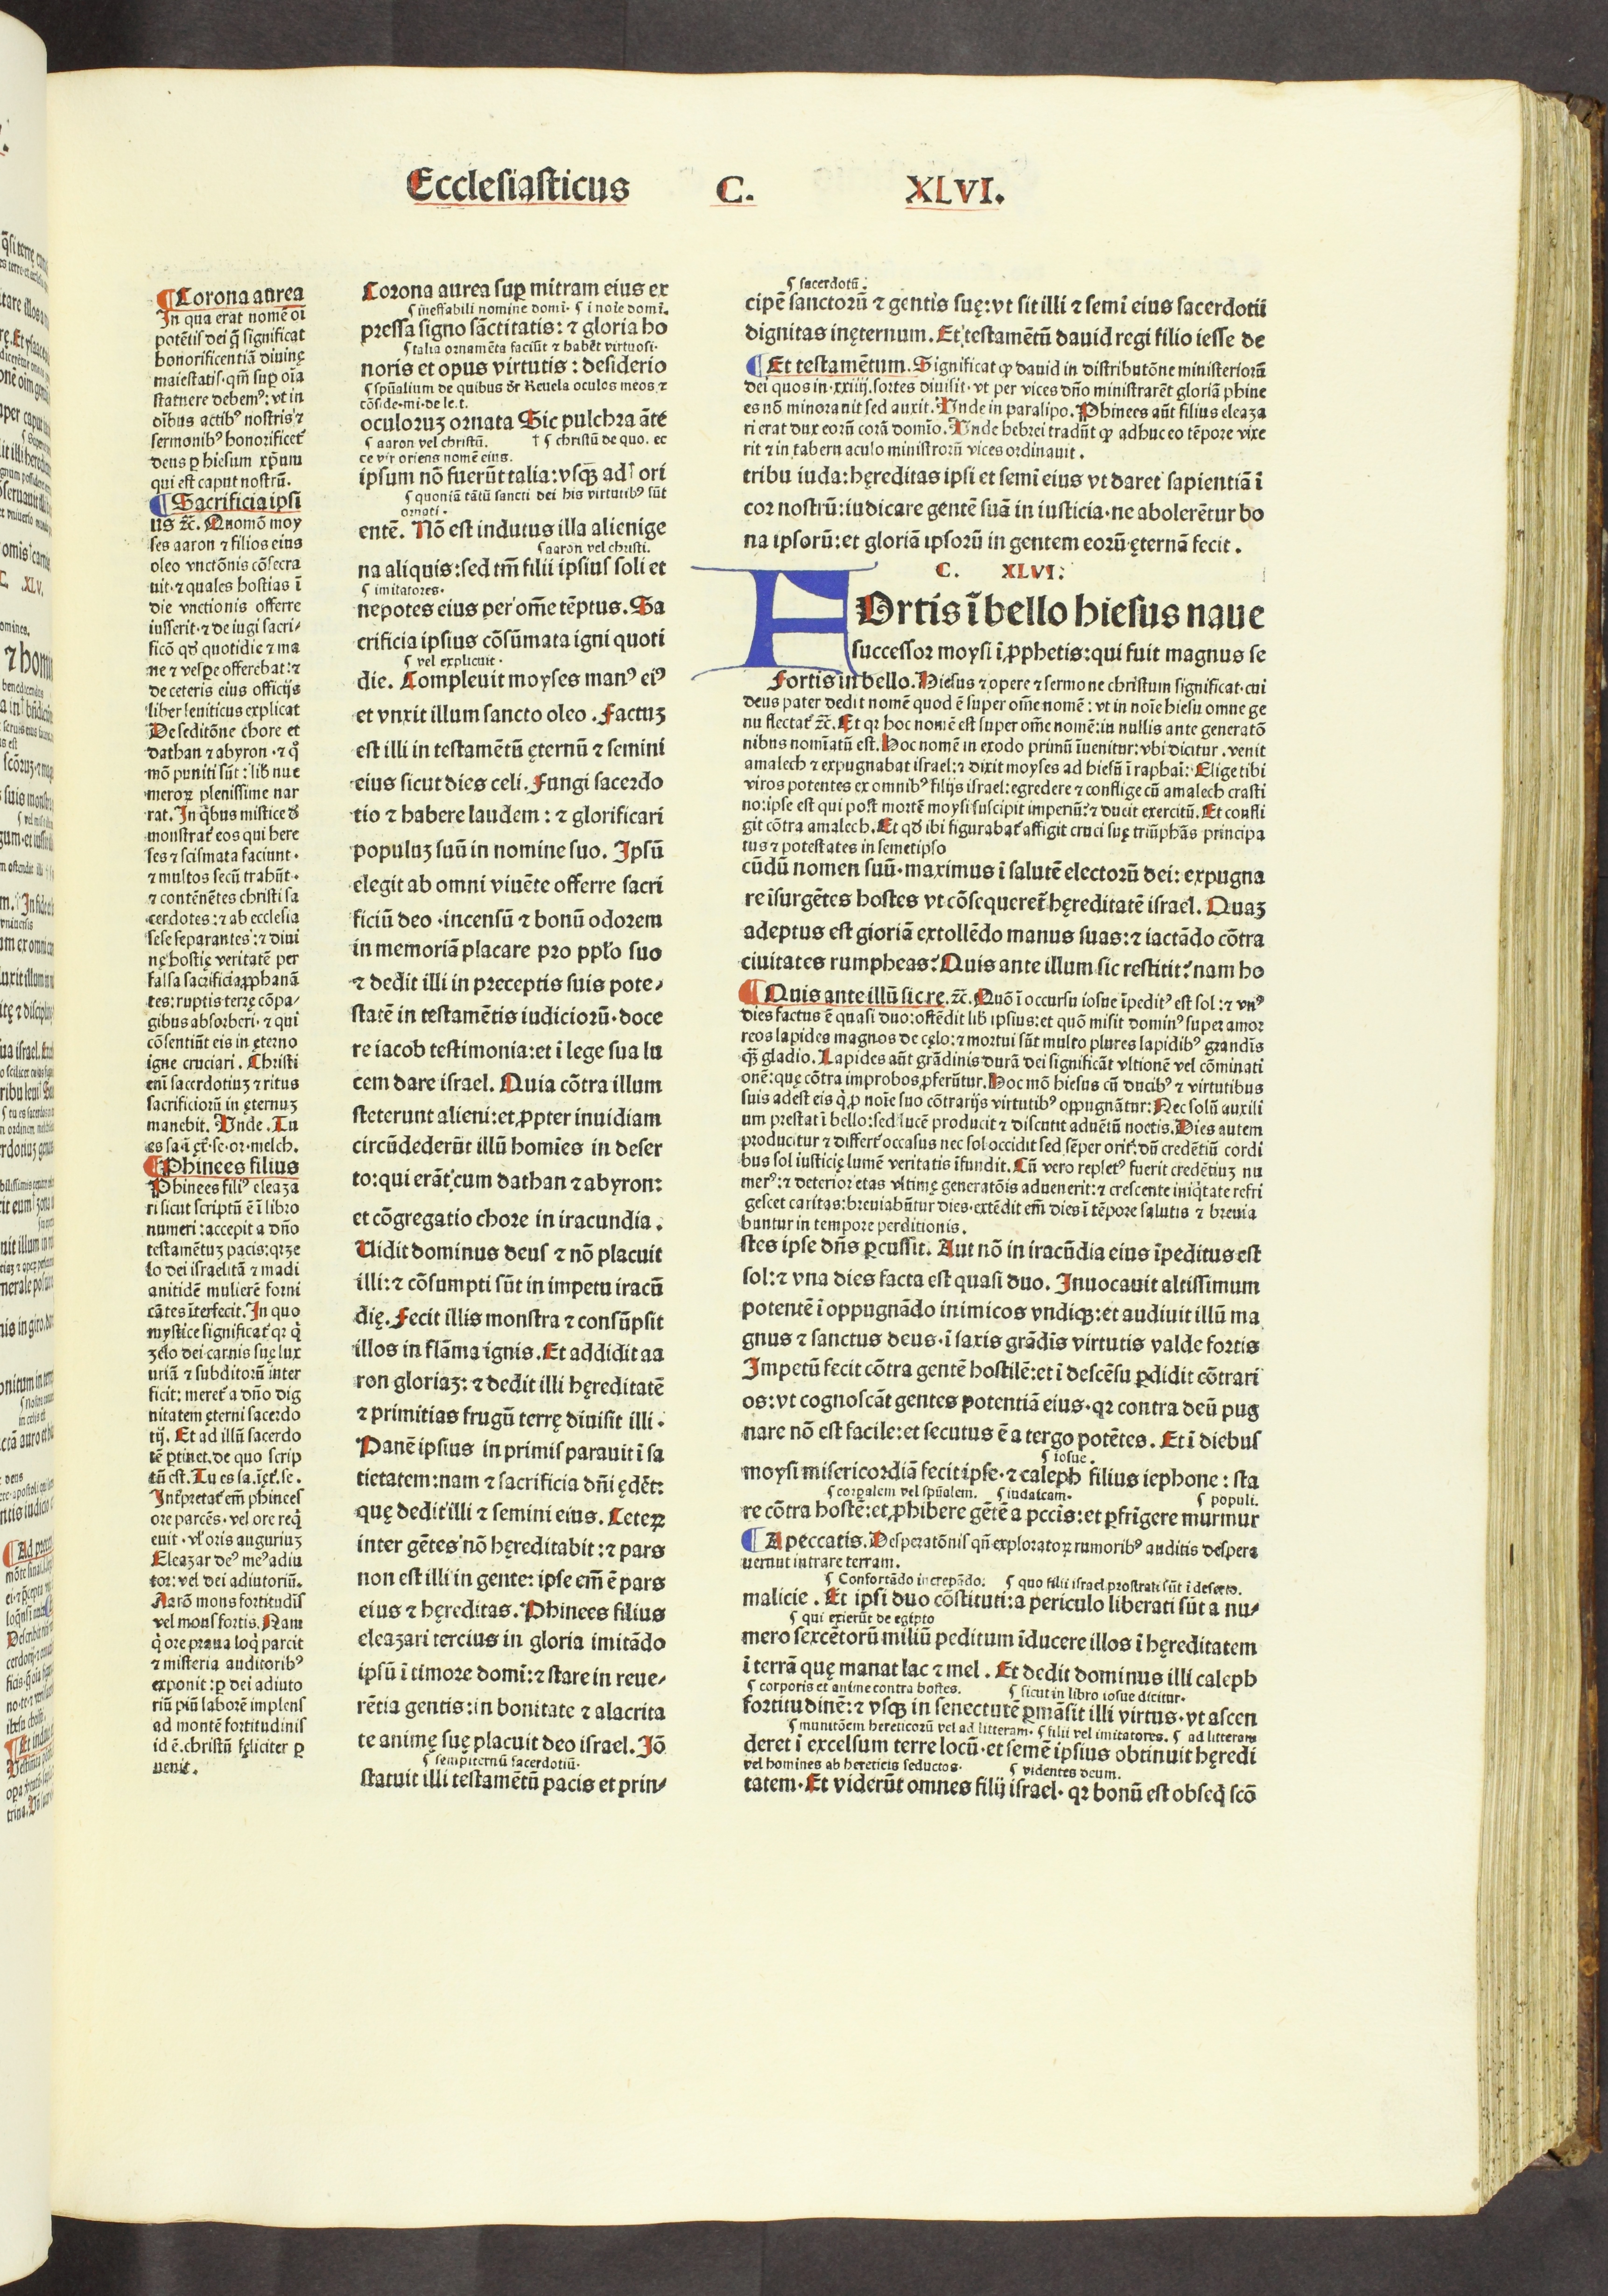 Ecclesiasticus C. XLVI.
¶Corona aurea
In qua erat nomē oī
potētis dei q̄ significat
honorificentiā diuinę
maiestatis·qm̄ sup oīa
statuere debemꝰ: vt in
oībus actibꝰ nostris ⁊
sermonibꝰ honorificet᷑
deus ꝑ hiesum xp̄um
qui est caput nostrū.
¶Sacrificia ipsi
us ⁊c̄. Quomō moy
ses aaron ⁊ filios eius
oleo vnctōnis cōsecra
uit·⁊ quales hostias ī
die vnctionis offerre
iusserit·⁊ de iugi sacri/
ficō qd̛ quotidie ⁊ ma
ne ⁊ vesꝑe offerebat:⁊
de ceteris eius officijs
liber leuiticus explicat
De seditōne chore et
dathan ⁊ abyron ·⁊ qͦ
mō puniti sūt: lib̛ nue
meroꝝ plenissime nar
rat. In qͥbus mistice d̛
monstrat᷑ eos qui here
ses ⁊ scismata faciunt·
⁊ multos secū trahūt·
⁊ contēnētes christi sa
cerdotes:⁊ ab ecclesia
sese separantes:⁊ diui
nę hostię veritatē per
falsa sacrificia ꝓphanā
tes: ruptis terrę cōpa/
gibus absorberi·⁊ qui
cōsentiūt eis in ęterno
igne cruciari. Christi
em̄ sacerdotiuʒ ⁊ ritus
sacrificiorū in ęternuʒ
manebit. Unde. Tu
es sa·ī ęt̄·se·or·melch.
¶Phinees filius
Phinees filiꝰ eleaza
ri sicut scriptū ē ī libro
numeri: accepit a dn̄o
testamētuʒ pacis: qꝛ ʒe
lo dei israelitā ⁊ madi
anitidē mulierē forni
cātes īterfecit. In quo
mystice significat᷑ qꝛ qͥ
ʒelo dei carnis suę lux
uriā ⁊ subditorū inter
ficit: meret᷑ a dn̄o dig
nitatem ęterni sacerdo
tij. Et ad illū sacerdo
tē ꝑtinet, de quo scrip
tū est. Tu es sa.ī ęt̄.se.
Int̄ꝑretat᷑ em̄ phinees
ore parcēs·vel ore reqͥ
euit·vl̛ oris auguriuʒ
Eleazar deꝰ meꝰ adiu
tor: vel dei adiutoriū.
Aarō mons fortitudis̄
vel mons fortis. Nam
qͥ ore praua loqͥ parcit
⁊ misteria auditoribꝰ
exponit: ꝑ dei adiuto
riū piū laborē implens
ad montē fortitudinis
id ē.christū fęliciter ꝑ
uenit.
Corona aurea suꝑ mitram eius ex
¶ ineffabili nomine domī· ¶ ī noīe domī.
pressa signo sāctitatis: ⁊ gloria ho
¶ talia ornamēta faciūt ⁊ habēt virtuosi·
noris et opus virtutis : desiderio
¶ spūalium de quibus dr̄ Reuela oculos meos ⁊
cōside·mi·de le.t.
oculoruʒ ornata Sic pulchra āte
¶ aaron vel christū. † ¶ christū de quo. ec
ce vir oriens nomē eius.
ipsum nō fuerūt talia: vsqꝫ ad† ori
¶ quoniā tātū sancti dei his virtutibꝰ sūt
ornati·
entē. Nō est indutus illa alienige
¶ aaron vel christi.
na aliquis: sed tm̄ filii ipsius soli et
¶ imitatores·
nepotes eius per om̄e tēptus. Sa
crificia ipsius cōsūmata igni quoti
¶ vel explicuit·
die. Compleuit moyses manꝰ eiꝰ
et vnxit illum sancto oleo . Factuʒ
est illi in testamētū ęternū ⁊ semini
eius sicut dies celi. Fungi sacerdo
tio ⁊ habere laudem : ⁊ glorificari
populuʒ suū in nomine suo. Ipsū
elegit ab omni viuēte offerre sacri
ficiū deo ·incensū ⁊ bonū odorem
in memoriā placare pro pplo̅ suo
⁊ dedit illi in preceptis suis pote/
statē in testamētis iudiciorū·doce
re iacob testimonia: et ī lege sua lu
cem dare israel. Quia cōtra illum
steterunt alieni: et ꝓpter inuidiam
circūdederūt illū homīes in deser
to: qui erāt cum dathan ⁊ abyron:
et cōgregatio chore in iracundia.
Uidit dominus deus ⁊ nō placuit
illi: ⁊ cōsumpti sūt in impetu iracū
dię. Fecit illis monstra ⁊ consūpsit
illos in flāma ignis. Et addidit aa
ron gloriaʒ: ⁊ dedit illi hęreditatē
⁊ primitias frugū terrę diuisit illi·
Panē ipsius in primis parauit ī sa
tietatem: nam ⁊ sacrificia dn̄i ędēt:
quę dedit illi ⁊ semini eius. Ceteꝝ
inter gētes nō hęreditabit: ⁊ pars
non est illi in gente: ipse em̄ ē pars
eius ⁊ hęreditas. Phinees filius
eleazari tercius in gloria imitādo
ipsū ī timore domī: ⁊ stare in reue/
rētia gentis: in bonitate ⁊ alacrita
te animę suę placuit deo israel. Iō
¶ sempiternū sacerdotiū·
statuit illi testamētū pacis et prin/
¶ sacerdotū·
cipē sanctorū ⁊ gentis suę: vt sit illi ⁊ semī eius sacerdotii
dignitas inęternum. Et testamētū dauid regi filio iesse de
¶Et testamētum. Significat ꝙ dauid in distributōne ministeriorū
dei quos in·xxiiij.sortes diuisit·vt per vices dn̄o ministrarēt gloriā phine
es nō minorauit sed auxit. Unde in paralipo. Phinees aūt filius eleaza
ri erat dux eorū corā domīo. Unde hebrei tradūt ꝙ adhuc eo tēpore vixe
rit ⁊ in tabern aculo ministrorū vices ordinauit .
tribu iuda: hęreditas ipsi et semī eius vt daret sapientiā ī
cor nostrū: iudicare gentē suā in iusticia·ne abolerētur bo
na ipsorū: et gloriā ipsorū in gentem eorū ęternā fecit .
C. XLVI:
FOrtis ī bello hiesus naue
successor moysi ī ꝓphetis: qui fuit magnus se
Fortis in bello. Hiesus ⁊ opere ⁊ sermone christum significat·cui
deus pater dedit nomē quod ē super om̄e nomē : vt in noīe hiesu omne ge
nu flectat᷑ ⁊c̄. Et qꝛ hoc nomē est super om̄e nomē: in nullis ante generatō
nibus nomīatū est. Hoc nomē in exodo primū īuenitur: vbi dicitur . venit
amalech ⁊ expugnabat israel: ⁊ dixit moyses ad hiesū ī raphaī: Elige tibi
viros potentes ex omnibꝰ filijs israel: egredere ⁊ conflige cū amalech crasti
no: ipse est qui post mortē moysi suscipit imperiū: ⁊ ducit exercitū. Et confli
git cōtra amalech. Et qd̛ ibi figurabat᷑ affigit cruci suę triūphās principa
tus ⁊ potestates in semetipso
cūdū nomen suū·maximus ī salutē electorū dei: expugna
re īsurgētes hostes vt cōsequeret᷑ hęreditatē israel. Quaʒ
adeptus est gioriā extollēdo manus suas: ⁊ iactādo cōtra
ciuitates rumpheas? Quis ante illum sic restitit? nam ho
¶Quis ante illū sic re. ⁊c̄. Quō ī occursu iosue īpeditꝰ est sol: ⁊ vnꝰ
dies factus ē quasi duo: ostēdit lib̛ ipsius: et quō misit dominꝰ super amor
reos lapides magnos de cęlo: ⁊ mortui sūt multo plures lapidibꝰ grandīs
qꝫ gladio. Lapides aūt grādinis durā dei significāt vltionē vel cōminati
onē: quę cōtra improbos ꝓferūtur. Hoc mō hiesus cū ducibꝰ ⁊ virtutibus
suis adest eis qͥ ꝓ noīe suo cōtrarijs virtutibꝰ oppugnātur: Nec solū auxili
um prestat ī bello: sed lucē producit ⁊ discutit aduētū noctis. Dies autem
producitur ⁊ differt᷑ occasus nec sol occidit sed sēper orit᷑: dū credētiū cordi
bus sol iusticię lumē veritatis īfundit. Cū vero repletꝰ fuerit credētiuʒ nu
merꝰ: ⁊ deterior etas vltimę generatōis aduenerit: ⁊ crescente iniqͥtate refri
gescet caritas: breuiabūtur dies·extēdit em̄ dies ī tēpore salutis ⁊ breuia
buntur in tempore perditionis .
stes ipse dn̄s ꝑcussit. Aut nō in iracūdia eius īpeditus est
sol: ⁊ vna dies facta est quasi duo. Inuocauit altissimum
potentē ī oppugnādo inimicos vndiqꝫ: et audiuit illū ma
gnus ⁊ sanctus deus·ī saxis grādīs virtutis valde fortis
Impetū fecit cōtra gentē hostilē: et ī descēsu ꝑdidit cōtrari
os: vt cognoscāt gentes potentiā eius·qꝛ contra deū pug
nare nō est facile: et secutus ē a tergo potētes. Et ī diebus
¶ iosue·
moysi misericordiā fecit ipse·⁊ caleph filius iephone : sta
¶ corꝑalem vel spūalem. ¶ iudaicam· ¶ populi.
re cōtra hostē: et ꝓhibere gētē a pccīs: et ꝑfrīgere murmur
¶A peccatis. Desperatōnis qn̄ exploratoꝝ rumoribꝰ auditis despera
uerunt intrare terram.
¶ Confortādo increpādo: ¶ quo filii israel prostrati sūt ī deserto.
malicie . Et ipsi duo cōstituti: a periculo liberati sūt a nu/
¶ qui exierūt de egipto
mero sexcētorū miliū peditum īducere illos ī hęreditatem
ī terrā quę manat lac ⁊ mel . Et dedit dominus illi caleph
¶ corporis et anime contra hostes. ¶ sicut in libro iosue dicitur·
fortitudinē: ⁊ vsqꝫ in senectutē ꝑmāsit illi virtus·vt ascen
¶ munitōem hereticorū vel ad litteram· ¶ filii vel imitatores. ¶ ad litteram
deret ī excelsum terre locū·et semē ipsius obtinuit hęredi
vel homines ab hereticis seductos· ¶ videntes deum.
tatem·Et viderūt omnes filij israel·qꝛ bonū est obseqͥ scō